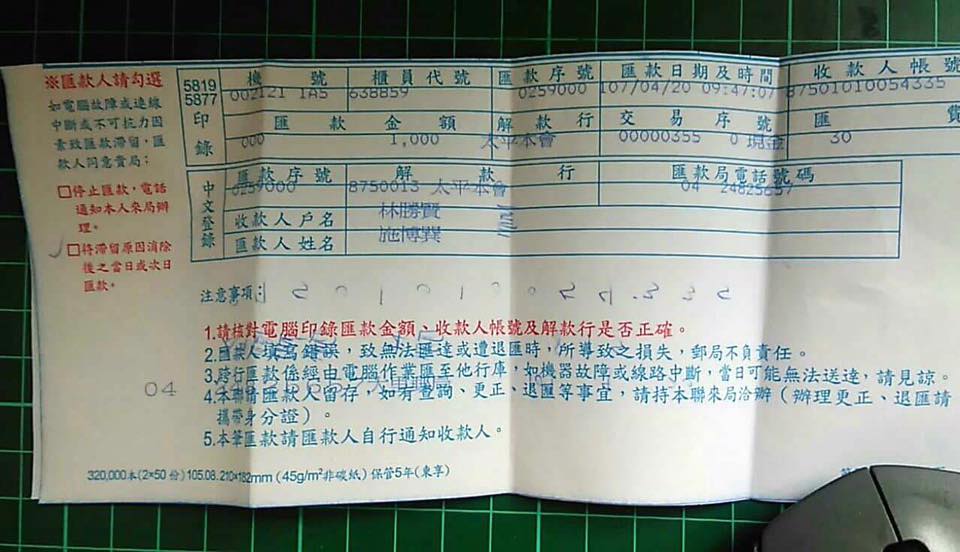 ※匯款人請勾選
如電腦故障或連線
中斷或不可抗力因
素致匯款滯留，匯
款人同意貴局：
□停止匯款，電話
通知本人來局辦
理。
□將滯留原因消除
後之當日或次日
匯款。
5819
5877
印
錄
機號 櫃員代號 匯款序號 匯款日期及時間 收款人帳號
002121 1A5 638859 0259000 107/04/20 09:47:07 87501010054335
匯款金額 解款行 交易序號 匯費
000 1,000 太平本會 00000355 0 現金 30
中文登錄
匯款序號 解款行 匯款局電話號碼
0259000 8750013 太平本會 04
收款人戶名 林勝賢
匯款人姓名 施博巽
注意事項：
1.請核對電腦印錄匯款金額、收款人帳號及解款行是否正確。
2.匯款人填寫錯誤，致無法匯達或遭退匯時，所導致之損失，郵局不負責任。
3.跨行匯款係經由電腦作業匯至他行庫，如機器故障或線路中斷，當日可能無法送達，請見諒。
04
4.本聯請匯款人留存，如有查詢、更正、退匯等事宜，請持本聯來局洽辦（辦理更正、退匯請
攜帶身分證）。
5.本筆匯款請匯款人自行通知收款人。
320,000本(2×50份)105.08.210×182mm (45g/m²非碳紙) 保管5年(東享)